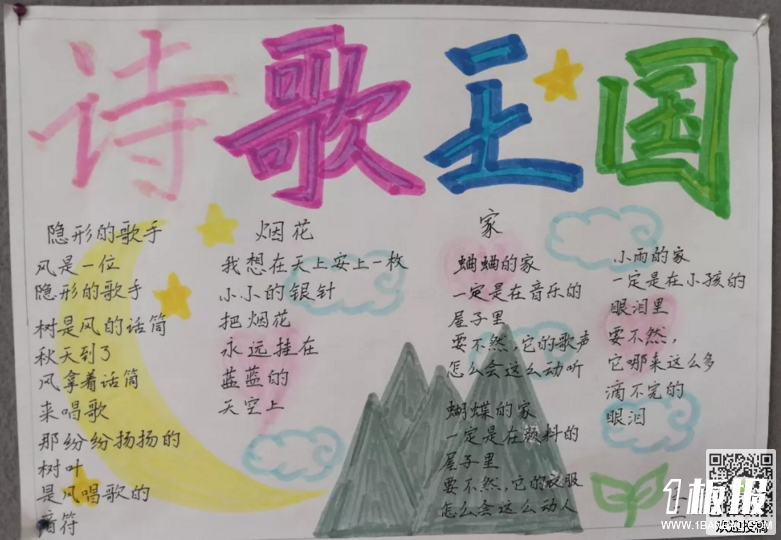 诗歌王国
隐形的歌手
风是一位
隐形的歌手
树是风的话筒
秋天到了
风拿着话筒
来唱歌
那纷纷扬扬的
树叶
是风唱歌的
音符
烟花
我想在天上安上一枚
小小的银针
把烟花
永远挂在
蓝蓝的
天空上
家
蝈蝈的家
一定是在音乐的
屋子里
要不然,它的歌声
怎么会这么动听
蝴蝶的家
一定是在颜料的
屋子里
要不然,它的衣服
怎么会这么动人
小雨的家
一定是在小孩的
眼泪里
要不然,
它哪来这么多
滴不完的
眼泪
1板报
WWW.1BANBAO.COM
欢迎投稿